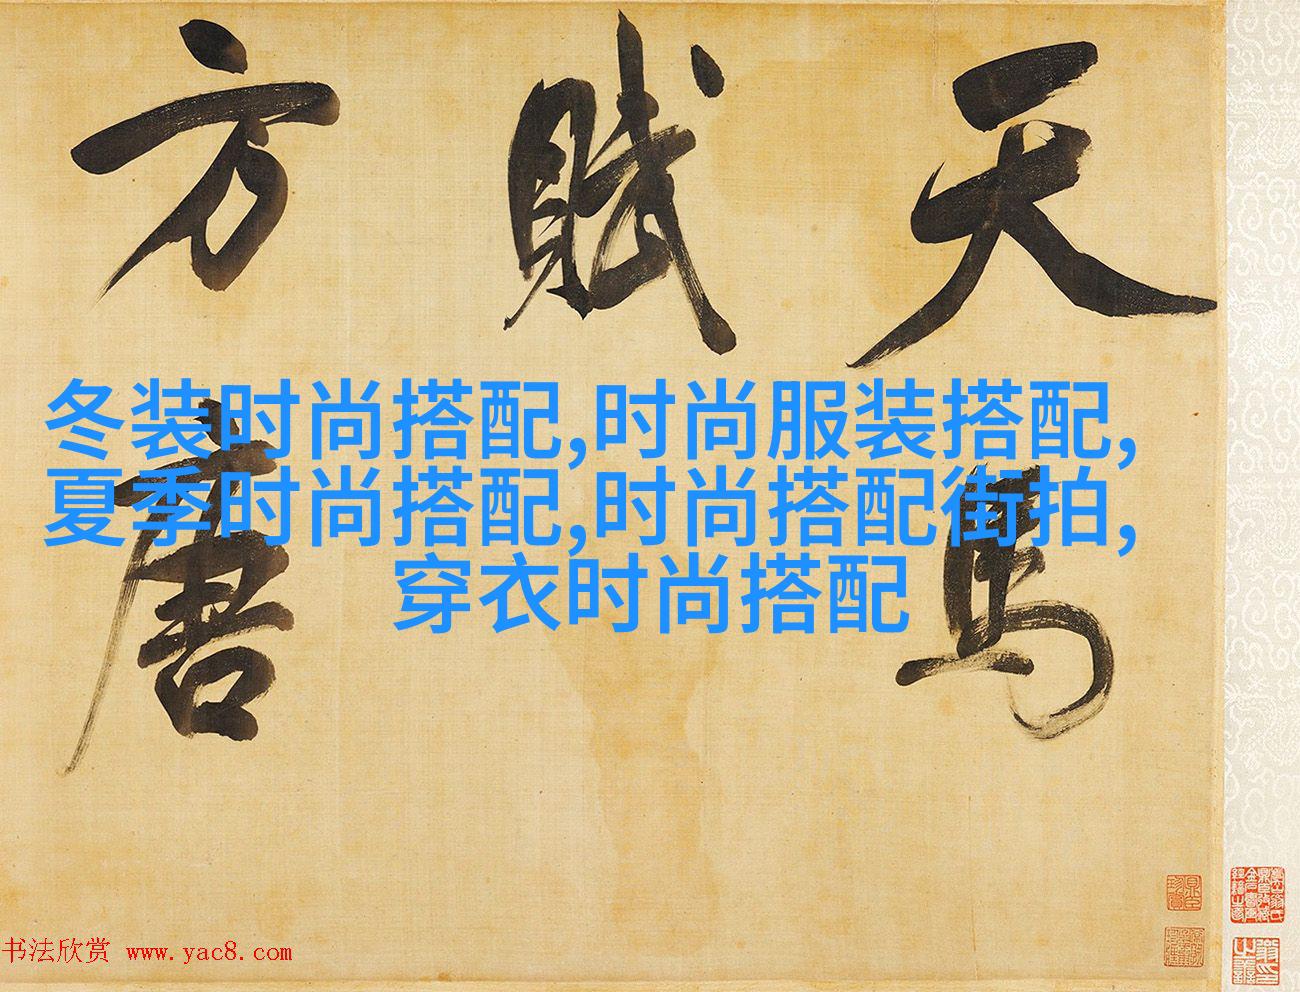 天馬
賦
方唐
冬装时尚搭配,时尚服装搭配,
夏季时尚搭配,时尚搭配街拍,
穿衣时尚搭配
书法欣赏 www.yac8.com